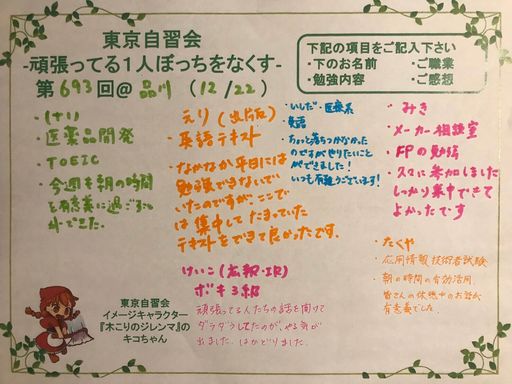 東京自習会
-頑張ってる1人ぼっちをなくす-
第693回@品川(12/22)
下記の項目をご記入下さい
・下のお名前 ・ご職業
・勉強内容 ・ご感想
・けり
医薬品開発
・TOEIC
・今週も朝の時間
を有意義に過ごすこと
ができた。
えり(出版)
・英語テキスト
なかなか平日には
勉強できないで
いたのですが、ここで
は集中してたまっていた
テキストをできて良かったです。
・いしだ・医療系
・英語
・ちょっと落ちつかなかった
のですがやりたいこと
ができました!
いつも有難うございます!
・みき
・メーカー相談室
・FPの勉強
・久々に参加しました
しっかり集中できて
よかったです
・たくや
・応用情報技術者試験
・朝の時間の有効活用。
皆さんの休憩中のお話も
有意義でした。
けいこ(広報・IR)
ボキ3級
頑張ってる人たちの話を聞けて
ダラダラしてたのが、やる気が
出ました。はかどりました。
東京自習会
イメージキャラクター
『木こりのジレンマ』の
キコちゃん